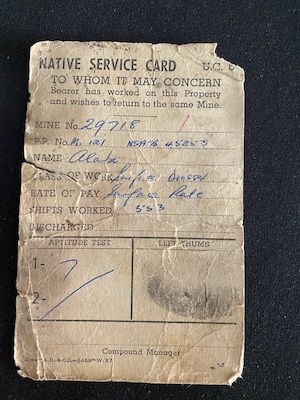 NATIVE SERVICE CARD U.C.
TO WHOM IT MAY CONCERN
Bearer has worked on this Property
and wishes to return to the same Mine.
MINE No. 29718
P.P. No. 45253
NAME
CLASS OF WORK Surface
RATE OF PAY Surface Rate
SHIFTS WORKED 553
DISCHARGED
APTITUDE TEST LEFT THUMB
1-
2-
Compound Manager